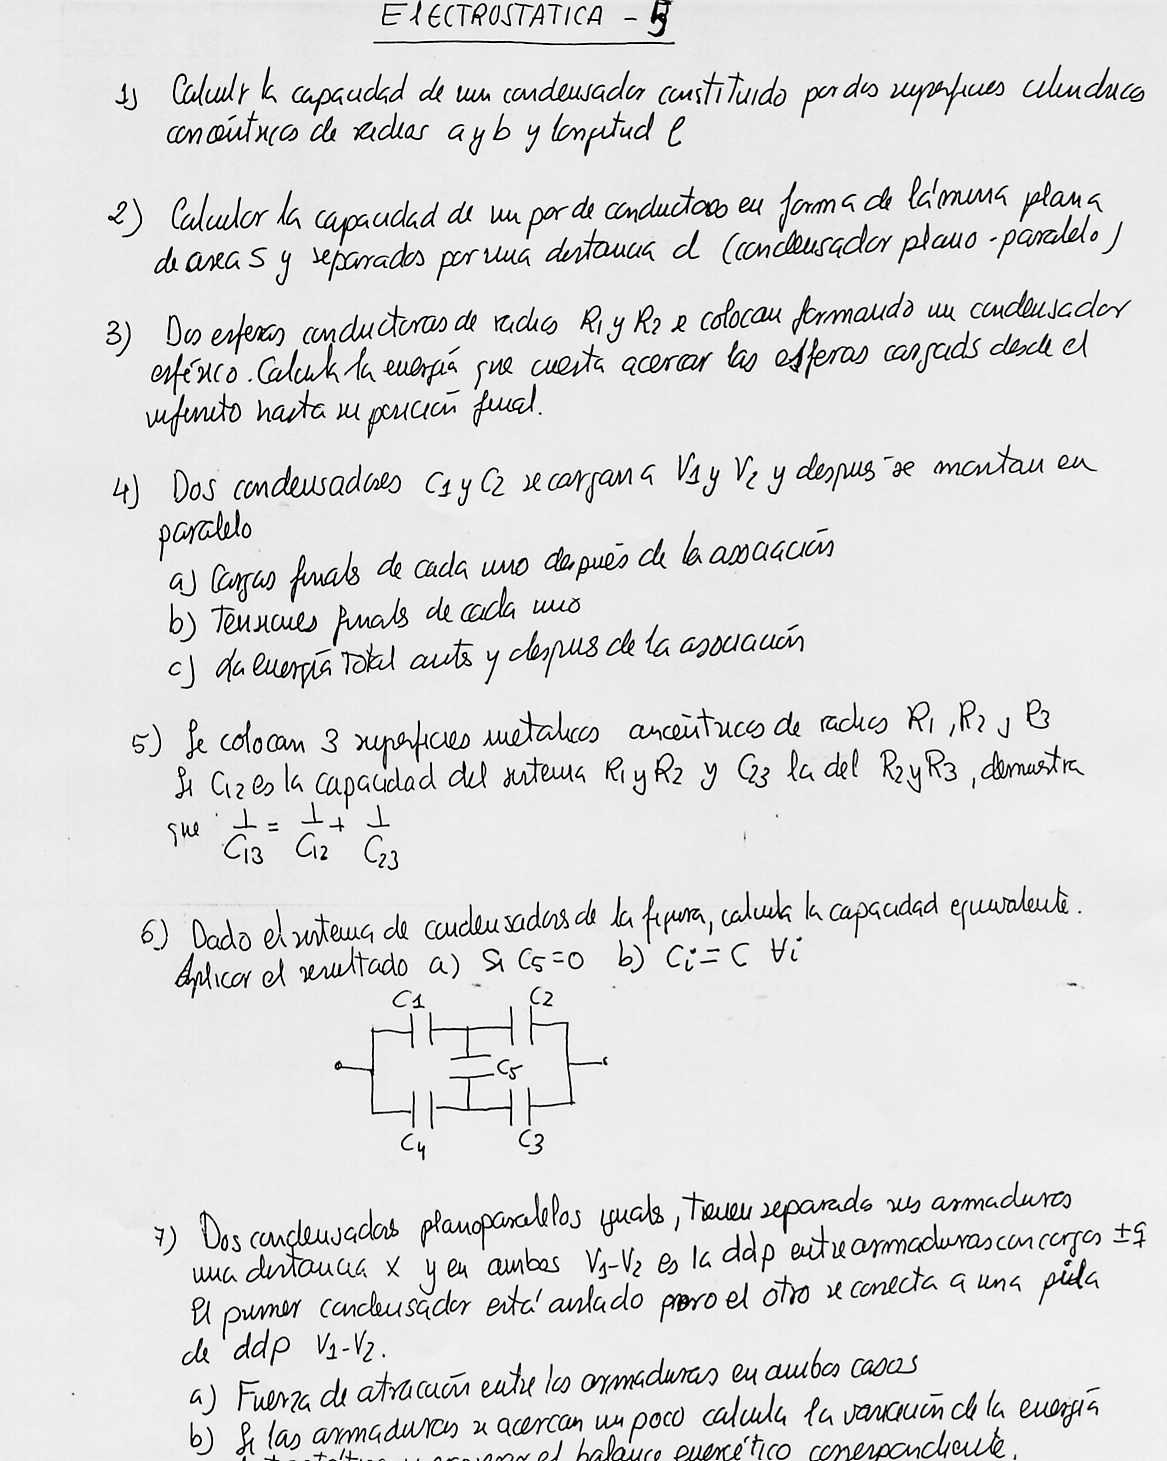 ELECTROSTATICA - 5
1) Calculr la capacidad de un condensador constituido por dos superficies cilindricas
concéntricas de radios a y b y longitud l
2) Calcular la capacidad de un par de conductores en forma de lámina plana
de area S y separados por una distancia d (condensador plano-paralelo)
3) Dos esferas conductoras de radios R1 y R2 se colocan formando un condensador
esférico. Calcula la energía que cuesta acercar las esferas cargads desde el
infinito hasta su posición final.
4) Dos condensadores C1 y C2 se cargan a V1 y V2 y despues se montan en
paralelo
a) Cargas finals de cada uno después de la asociación
b) Tensiones finals de cada uno
c) La energía Total antes y despues de la asociación
5) Se colocan 3 superficies metálicas concéntricas de radios R1, R2 y R3
Si C12 es la capacidad del sistema R1 y R2 y C23 la del R2 y R3, demuestra
que 1/C13 = 1/C12 + 1/C23
6) Dado el sistema de condensadores de la figura, calcula la capacidad equivalente.
Aplicar el resultado a) Si C5=0 b) Ci=C ∀i
C1 C2
C5
C4 C3
7) Dos condensadores planoparalelos iguals, tienen separada sus armaduras
una distancia x y en ambos V1-V2 es la ddp entre armaduras con cargas ±q
El primer condensador está aislado pero el otro se conecta a una pila
de ddp V1-V2.
a) Fuerza de atracción entre las armaduras en ambos casos
b) Si las armaduras se acercan un poco calcula la variación de la energía
el balance energético correspondiente.